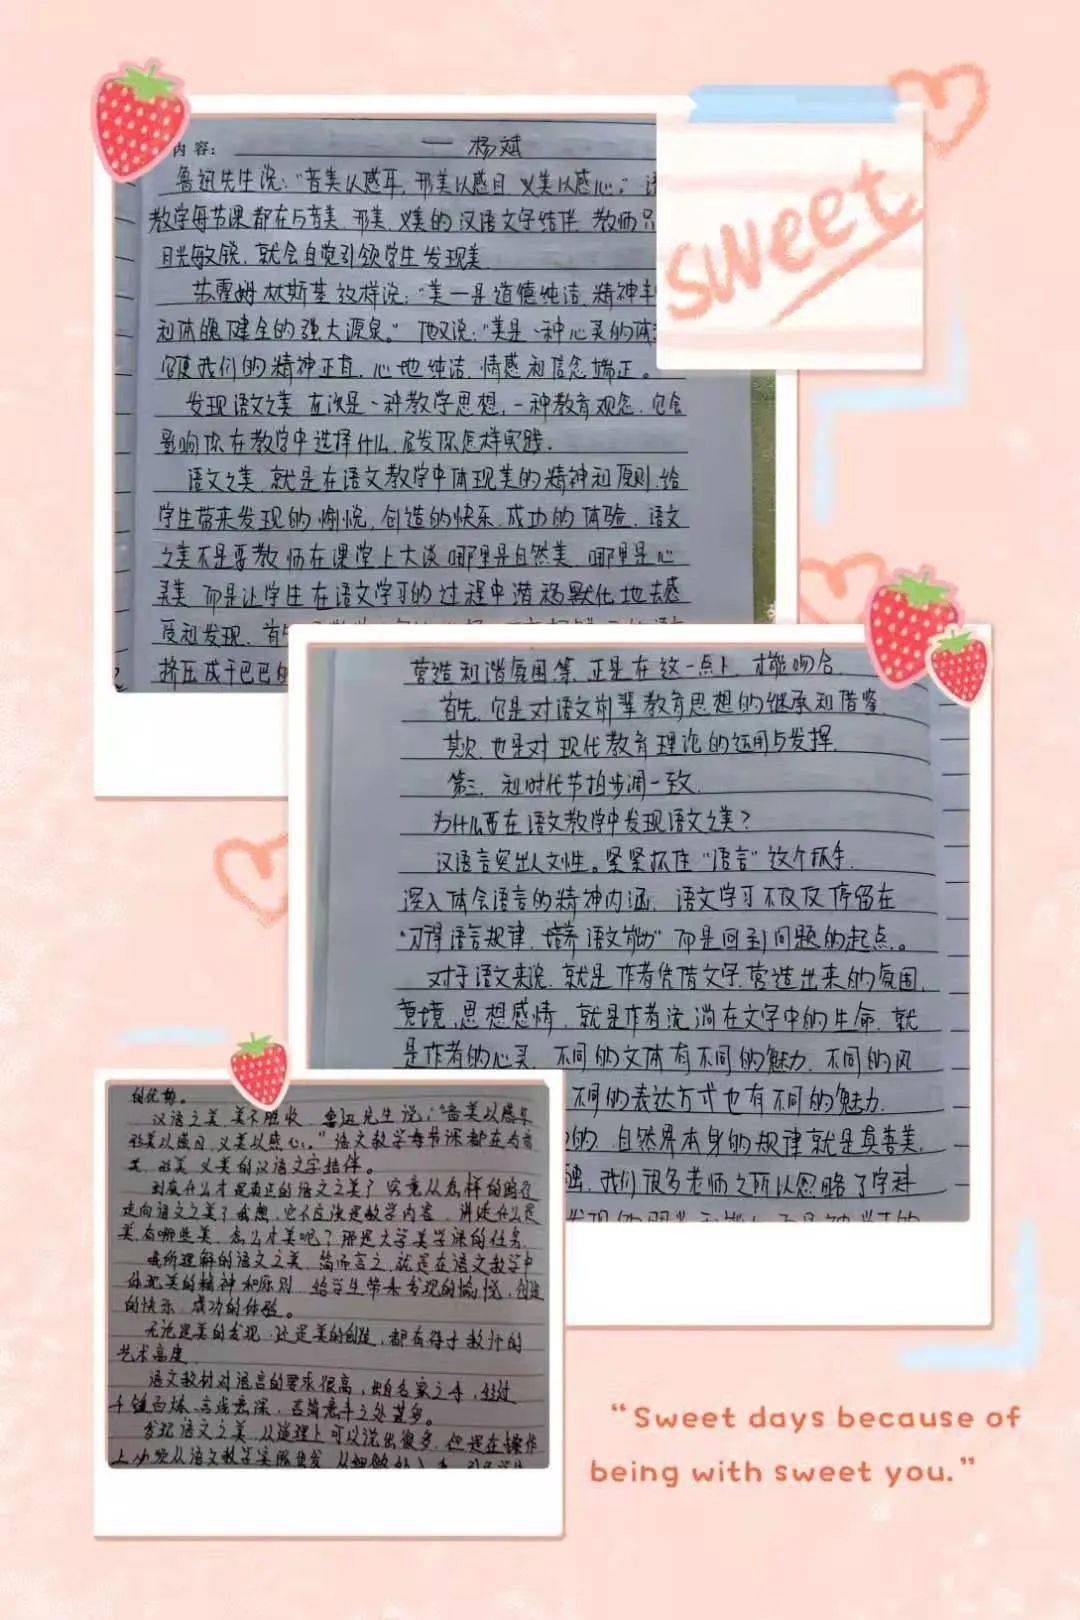 内容： 一 杨斌
鲁迅先生说："音美以感耳，形美以感目 义美以感心。"
教学每节课都在与音美、形美、义美的汉语文字结伴 教师只
目光敏锐，就会自觉引领学生发现美
苏霍姆林斯基这样说："美一是道德纯洁、精神丰
和体魄健全的强大源泉。"他又说："美是一种心灵的体
它使我们的精神正直，心地纯洁，情感和信念端正。
发现语文之美 首次是一种教学思想，一种教育观念，它会
影响你在教学中选择什么，启发你怎样实践．
语文之美，就是在语文教学中体现美的精神和原则，给
学生带来发现的愉悦，创造的快乐，成功的体验．语文
之美不是要教师在课堂上大谈哪里是自然美 哪里是心
灵美 而是让学生在语文学习的过程中潜移默化地去感
受和发现．
挤压成干巴巴的
sweet
营造和谐氛围等，正是在这一点上，才能吻合．
首先，它是对语文前辈教育思想的继承和借鉴．
其次 也是对现代教育理论的运用与发挥．
第三，和时代节拍步调一致．
为什么要在语文教学中发现语文之美？
汉语言突出人文性。紧紧抓住"语言"这个抓手，
深入体会语言的精神内涵，语文学习不仅仅停留在
"习得语言规律，培养语文能力"而是回到问题的起点。
对于语文来说，就是作者凭借文字，营造出来的氛围，
意境，思想感情，就是作者流淌在文字中的生命，就
是作者的心灵，不同的文体有不同的魅力，不同的风
不同的表达方式也有不同的魅力．
的，自然界本身的规律就是真善美，
我们很多老师之所以忽略了学科
的优势。
汉语之美 美不胜收 鲁迅先生说："音美以感耳
形美以感目，义美以感心。"语文教学每节课都在与音
美、形美、义美的汉语文字结伴。
到底什么才是真正的语文之美？究竟从怎样的路径
走向语文之美？我想，它不应该是教学内容，讲述什么是
美，有哪些美，怎么才美呢？那是大学美学课的任务．
我所理解的语文之美，简而言之，就是在语文教学中
体现美的精神和原则，给学生带来发现的愉悦，创造
的快乐 成功的体验。
无论是美的发现，还是美的创造，都有待于教师的
艺术高度．
语文教材对语言的要求很高，出自名家之手，经过
千锤百炼，言浅意深，言简意丰之处甚多。
发现语文之美，从道理上可以说出很多，但是在操作
上必须从语文教学实际出发
"Sweet days because of
being with sweet you."